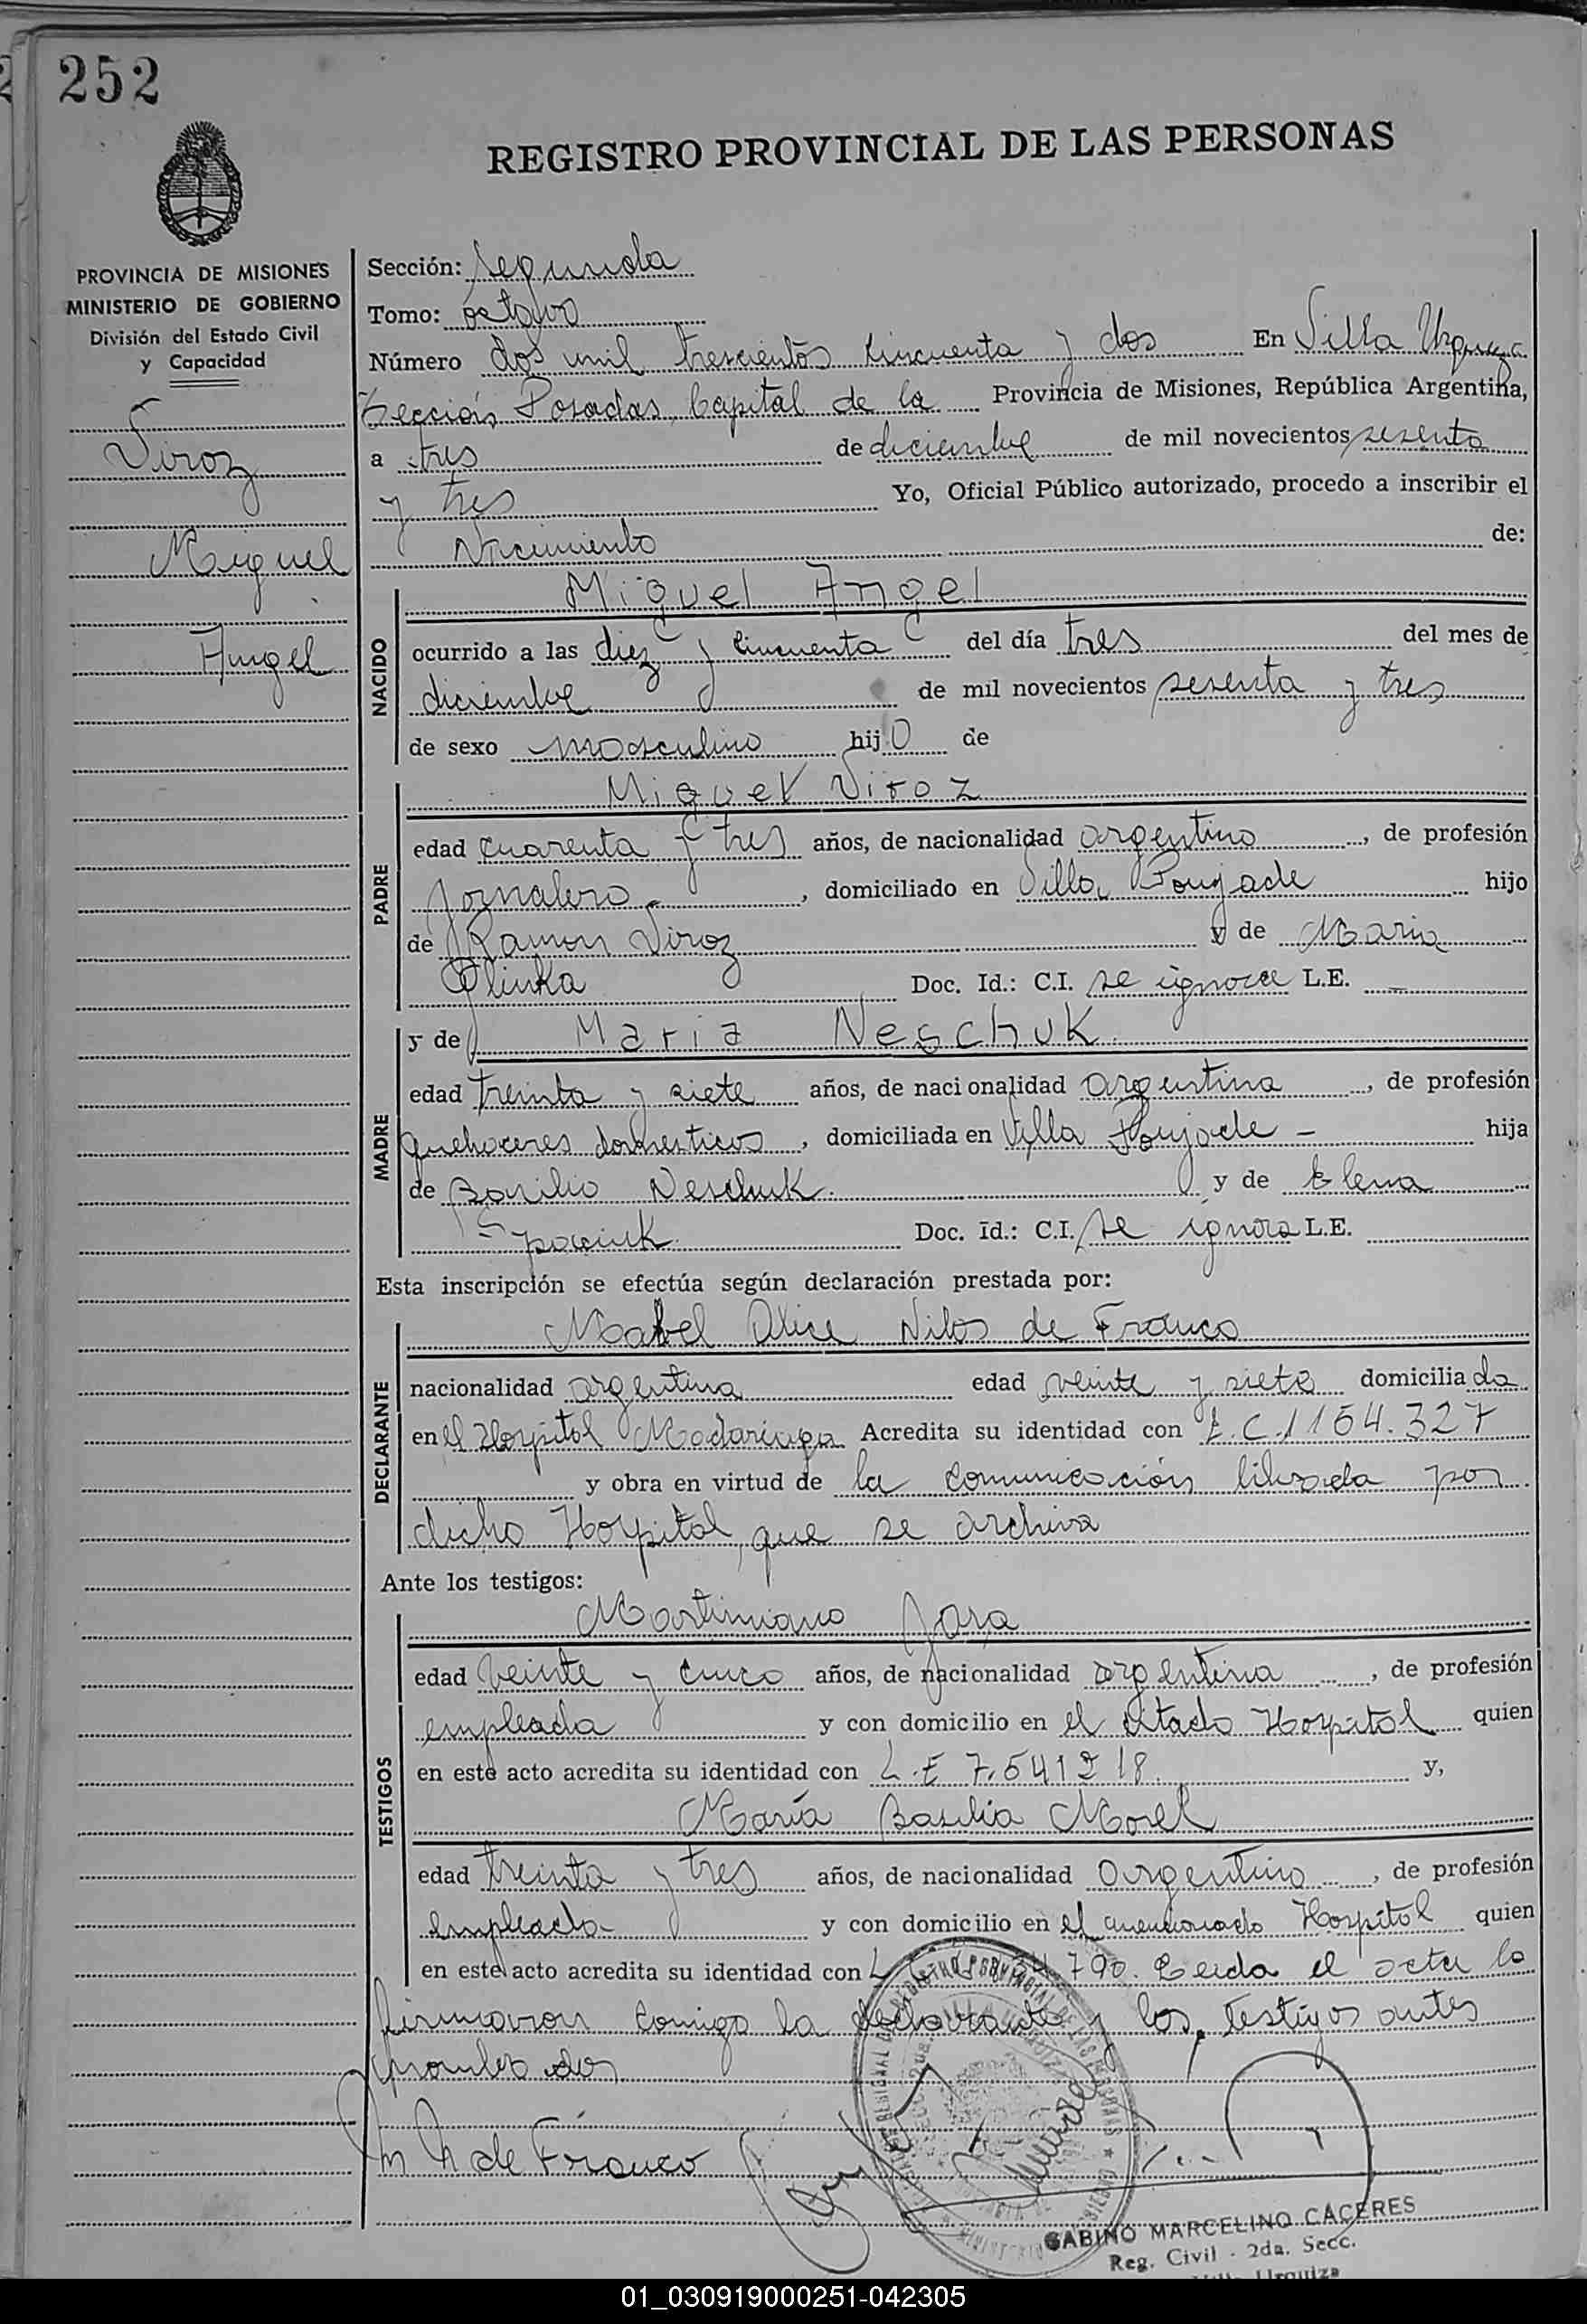 252
REGISTRO PROVINCIAL DE LAS PERSONAS
PROVINCIA DE MISIONES
MINISTERIO DE GOBIERNO
División del Estado Civil
y Capacidad
Viroz
Miguel
Angel
Sección: Segunda
Tomo: octavo
Número dos mil trescientos cincuenta y dos En Villa Urquiza
Sección Posadas, Capital de la Provincia de Misiones, República Argentina,
a tres de diciembre de mil novecientos sesenta
y tres Yo, Oficial Público autorizado, procedo a inscribir el
Nacimiento de:
NACIDO
Miguel Angel
ocurrido a las diez y cincuenta del día tres del mes de
diciembre de mil novecientos sesenta y tres
de sexo masculino hijo de
PADRE
Miguel Viroz
edad cuarenta y tres años, de nacionalidad argentino, de profesión
Jornalero, domiciliado en Villa Poujade hijo
de Ramon Viroz y de Maria
Glinka Doc. Id.: C.I. se ignora L.E. —
MADRE
y de Maria Neschuk
edad treinta y siete años, de nacionalidad argentina, de profesión
quehaceres domesticos, domiciliada en Villa Poujade — hija
de Basilio Neschuk y de Elena
Doc. Id.: C.I. se ignora L.E.
Esta inscripción se efectúa según declaración prestada por:
DECLARANTE
Mabel Alice de Franco
nacionalidad argentina edad veinte y siete domiciliada
en el Hospital Madariaga Acredita su identidad con L.C. 1164.327
y obra en virtud de la comunicación librada por
dicho Hospital, que se archiva
Ante los testigos:
TESTIGOS
Martimiano Jara
edad veinte y cinco años, de nacionalidad argentina, de profesión
empleada y con domicilio en el citado Hospital quien
en este acto acredita su identidad con L.E 7.541218. y,
María Basilia Morel
edad treinta y tres años, de nacionalidad argentino, de profesión
empleado y con domicilio en el mencionado Hospital quien
en este acto acredita su identidad con L 790. Leida el acta la
firmaron conmigo la declarante y los testigos antes
nombrados
M N de Franco
GABINO MARCELINO CACERES
Reg. Civil - 2da. Secc.
Villa Urquiza
01_030919000251-042305